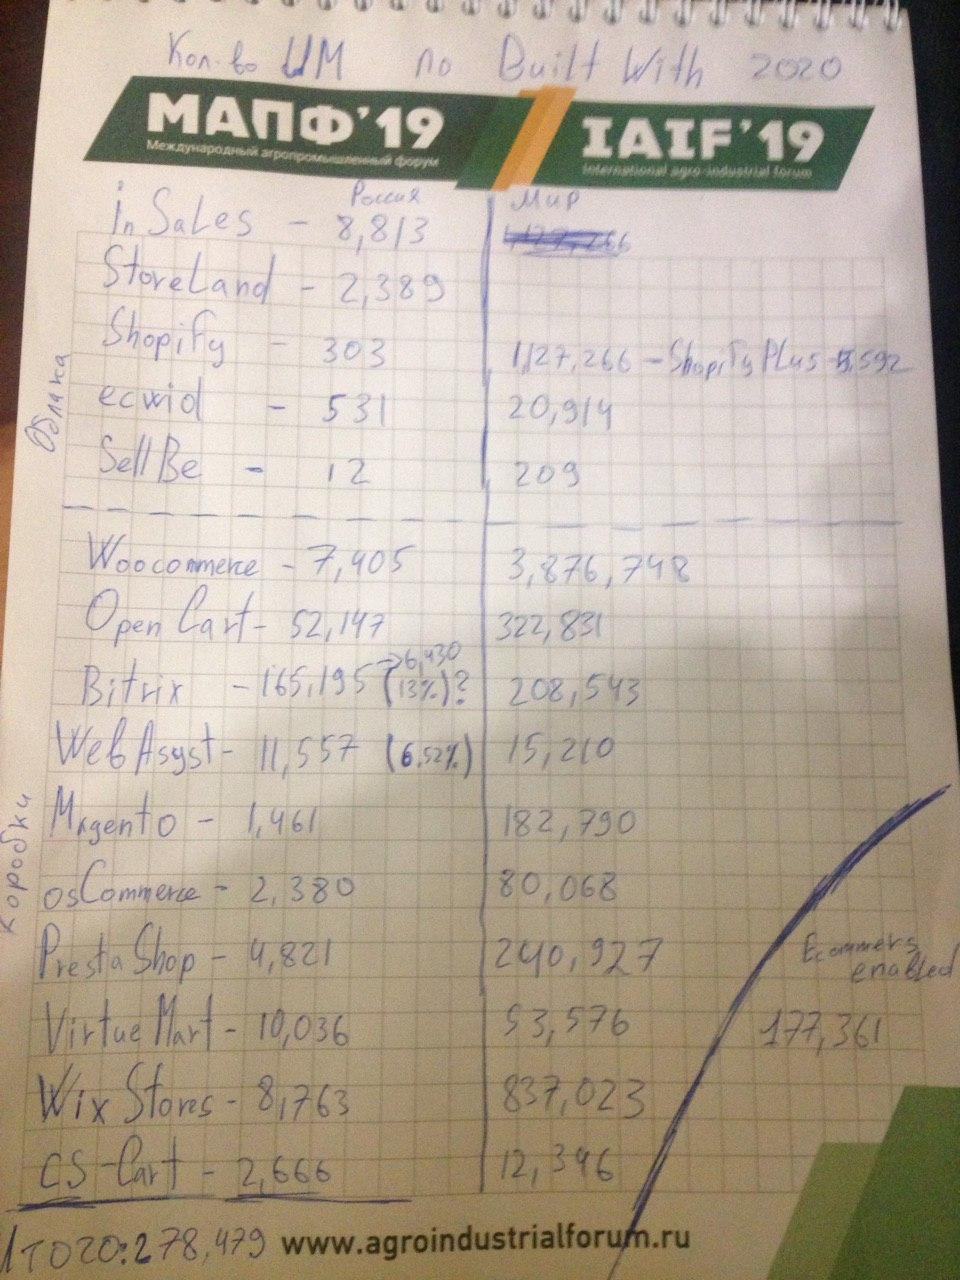 Кол-во ИМ по Built With 2020
МАПФ'19
Международный агропромышленный форум
IAIF'19
international agro-industrial forum
Россия Мир
inSales - 8,813
StoreLand - 2,389
Shopify - 303 1,127,266 - Shopify Plus - 5,592
ecwid - 531 20,914
SellBe - 12 209
Облака
Woocommerce - 7,405 3,876,748
OpenCart - 52,147 322,831
→6,430
Bitrix - 165,195 (13%)? 208,543
WebAsyst - 11,557 (6,52%) 15,210
Magento - 1,461 182,790
osCommerce - 2,380 80,068
PrestaShop - 4,821 240,927
VirtueMart - 10,036 53,576
Wix Stores - 8,763 837,023
CS-Cart - 2,666 12,346
Коробки
Ecommers
enabled
177,361
Итого: 278,479
www.agroindustrialforum.ru